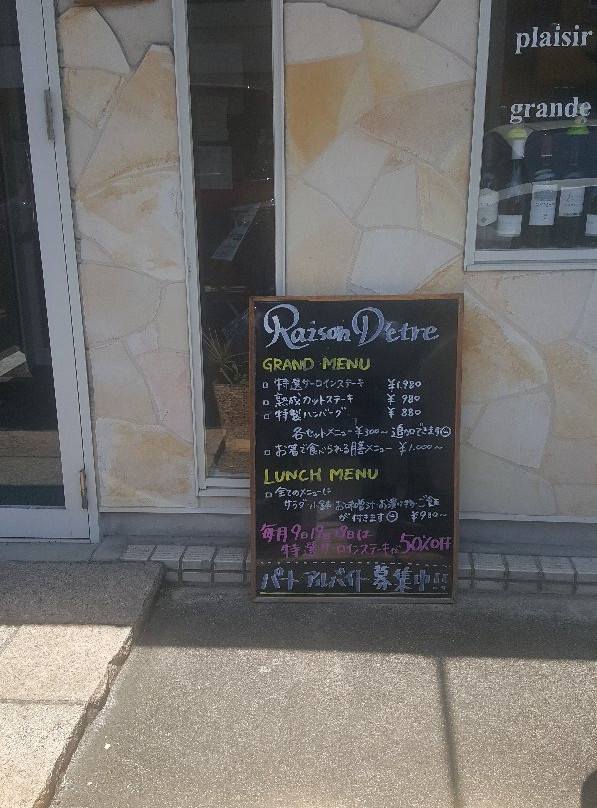 plaisir
grande
Raison D'etre
GRAND MENU
□ 特選サーロインステーキ ¥1,980
□ 熟成カットステーキ ¥ 980
□ 特製ハンバーグ ¥ 880
各セットメニュー ¥300~ 追加できます
□ お箸で食べられる膳メニュー ¥1,000~
LUNCH MENU
□ 全てのメニューに
サラダ 小鉢 お味噌汁 お漬け物 ご飯
が付きます ¥980~
毎月9日19日29日は
特選サーロインステーキが 50%OFF
パート アルバイト 募集中!!